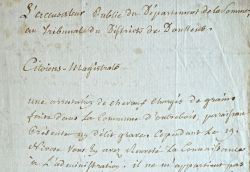 L'accusateur Public du Département de la Somme
au Tribunal du District de Doullens
Citoyens Magistrats
une arrestation de chevaux chargés de grains
faite dans la Commune d'
délit grave Cependant le 29
vous en avez renvoyé la Connaissance
à L'administration, il ne m'appartient pas